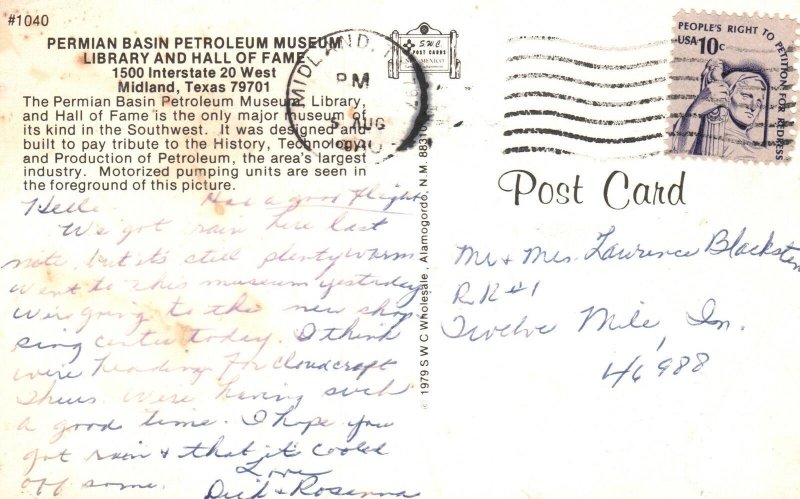 #1040
PERMIAN BASIN PETROLEUM MUSEUM
LIBRARY AND HALL OF FAME
1500 Interstate 20 West
Midland, Texas 79701
The Permian Basin Petroleum Museum, Library,
and Hall of Fame is the only major museum of
its kind in the Southwest. It was designed and
built to pay tribute to the History, Technology
and Production of Petroleum, the area's largest
industry. Motorized pumping units are seen in
the foreground of this picture.
Hello Had a good flight
We got rain here last
nite, but its steel plenty warm
Went to this museum yesterday
We're going to the new shop
ping center today. I think
we're heading for Cloudcroft
Thurs. We're having such
a good time. I hope you
got rain & that it cooled
off some. Love
Dick & Rosanna
© 1979 S W C Wholesale, Alamogordo, N.M. 88310
S.W.C.
POST CARDS
MIDLAND, T
PM
5 AUG
PEOPLE'S RIGHT TO PETITION FOR REDRESS
USA 10c
Post Card
Mr & Mrs. Lawrence Blacksten
R.R.#1
Twelve Mile, In.
46988